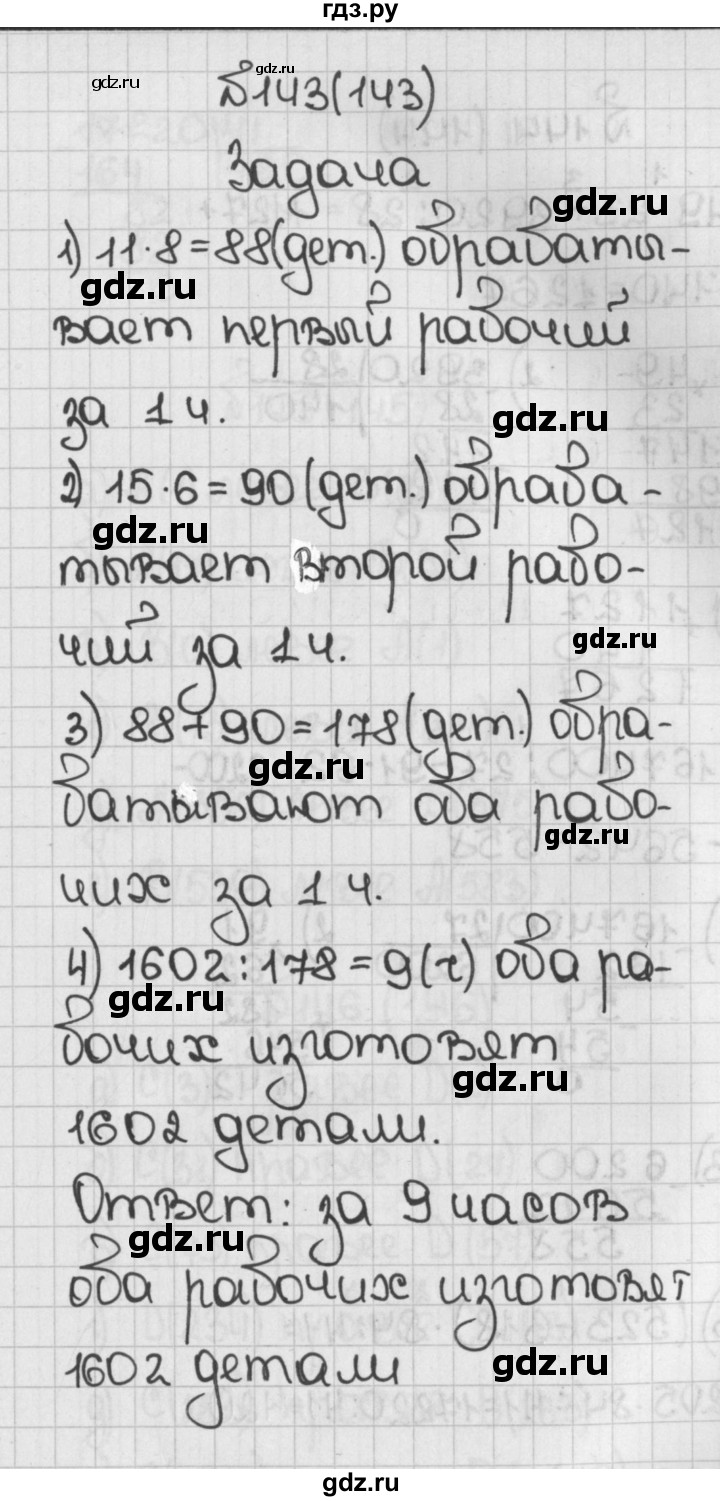 гдз.ру
gdz.ru
gdz.ru
№143(143)
Задача
gdz.ru
1) 11·8=88(дет.) обрабаты-
gdz.ru
вает первый рабочий
за 1 ч.
gdz.ru
2) 15·6=90(дет.) обраба-
gdz.ru
тывает второй рабо-
чий за 1 ч.
gdz.ru
3) 88+90=178(дет.) обра-
gdz.ru
батывают оба рабо-
gdz.ru
чих за 1 ч.
4) 1602:178=9(ч) оба ра-
gdz.ru
бочих изготовят
gdz.ru
1602 детали.
Ответ: за 9 часов
gdz.ru
оба рабочих изготовят
1602 детали
gdz.ru
gdz.ru